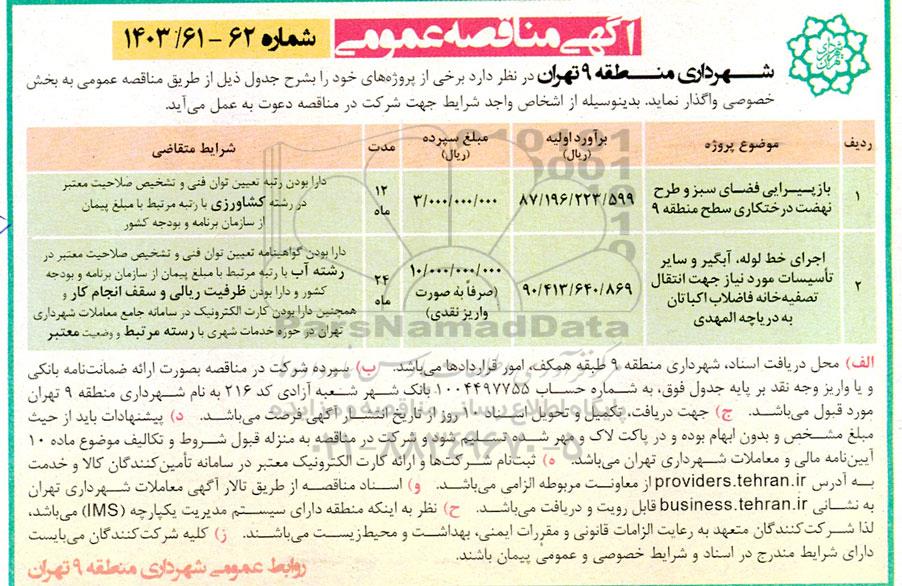 آگهی مناقصه عمومی
شماره ۶۲ - ۶۱/ ۱۴۰۳
شهرداری منطقه ۹ تهران در نظر دارد برخی از پروژه‌های خود را بشرح جدول ذیل از طریق مناقصه عمومی به بخش
خصوصی واگذار نماید. بدینوسیله از اشخاص واجد شرایط جهت شرکت در مناقصه دعوت به عمل می‌آید.
ردیف
موضوع پروژه
برآورد اولیه
(ریال)
مبلغ سپرده
(ریال)
مدت
شرایط متقاضی
۱
بازپیرایی فضای سبز و طرح
نهضت درختکاری سطح منطقه ۹
۸۷/۱۹۶/۲۲۳/۵۹۹
۳/۰۰۰/۰۰۰/۰۰۰
۱۲
ماه
دارا بودن رتبه تعیین توان فنی و تشخیص صلاحیت معتبر
در رشته کشاورزی با رتبه مرتبط با مبلغ پیمان
از سازمان برنامه و بودجه کشور
۲
اجرای خط لوله، آبگیر و سایر
تأسیسات مورد نیاز جهت انتقال
تصفیه‌خانه فاضلاب اکباتان
به دریاچه المهدی
۹۰/۴۱۳/۶۴۰/۸۶۹
۱۰/۰۰۰/۰۰۰/۰۰۰
(صرفاً به صورت
واریز نقدی)
۲۴
ماه
دارا بودن گواهینامه تعیین توان فنی و تشخیص صلاحیت معتبر در
رشته آب با رتبه مرتبط با مبلغ پیمان از سازمان برنامه و بودجه
کشور و دارا بودن ظرفیت ریالی و سقف انجام کار و
همچنین دارا بودن کارت الکترونیک در سامانه جامع معاملات شهرداری
تهران در حوزه خدمات شهری با رسته مرتبط و وضعیت معتبر
الف) محل دریافت اسناد، شهرداری منطقه ۹ طبقه همکف، امور قراردادها می‌باشد. ب) سپرده شرکت در مناقصه بصورت ارائه ضمانت‌نامه بانکی
و یا واریز وجه نقد بر پایه جدول فوق، به شماره حساب ۱۰۰۴۴۹۷۷۵۵ بانک شهر شعبه آزادی کد ۲۱۶ به نام شهرداری منطقه ۹ تهران
مورد قبول می‌باشد. ج) جهت دریافت، تکمیل و تحویل اسناد ۱۰ روز از تاریخ انتشار آگهی فرصت می‌باشد. د) پیشنهادات باید از حیث
مبلغ مشخص و بدون ابهام بوده و در پاکت لاک و مهر شده تسلیم شود و شرکت در مناقصه به منزله قبول شروط و تکالیف موضوع ماده ۱۰
آیین‌نامه مالی و معاملات شهرداری تهران می‌باشد. ه) ثبت‌نام شرکت‌ها و ارائه کارت الکترونیک معتبر در سامانه تأمین‌کنندگان کالا و خدمت
به آدرس providers.tehran.ir از معاونت مربوطه الزامی می‌باشد. و) اسناد مناقصه از طریق تالار آگهی معاملات شهرداری تهران
به نشانی business.tehran.ir قابل رویت و دریافت می‌باشد. ح) نظر به اینکه منطقه دارای سیستم مدیریت یکپارچه (IMS) می‌باشد،
لذا شرکت‌کنندگان متعهد به رعایت الزامات قانونی و مقررات ایمنی، بهداشت و محیط‌زیست می‌باشند. ز) کلیه شرکت‌کنندگان می‌بایست
دارای شرایط مندرج در اسناد و شرایط خصوصی و عمومی پیمان باشند.
روابط عمومی شهرداری منطقه ۹ تهران
ParsNamadData
پایگاه اطلاع رسانی مناقصه و مزایده
۰۲۱-۸۸۳۴۹۶۷۰-۵